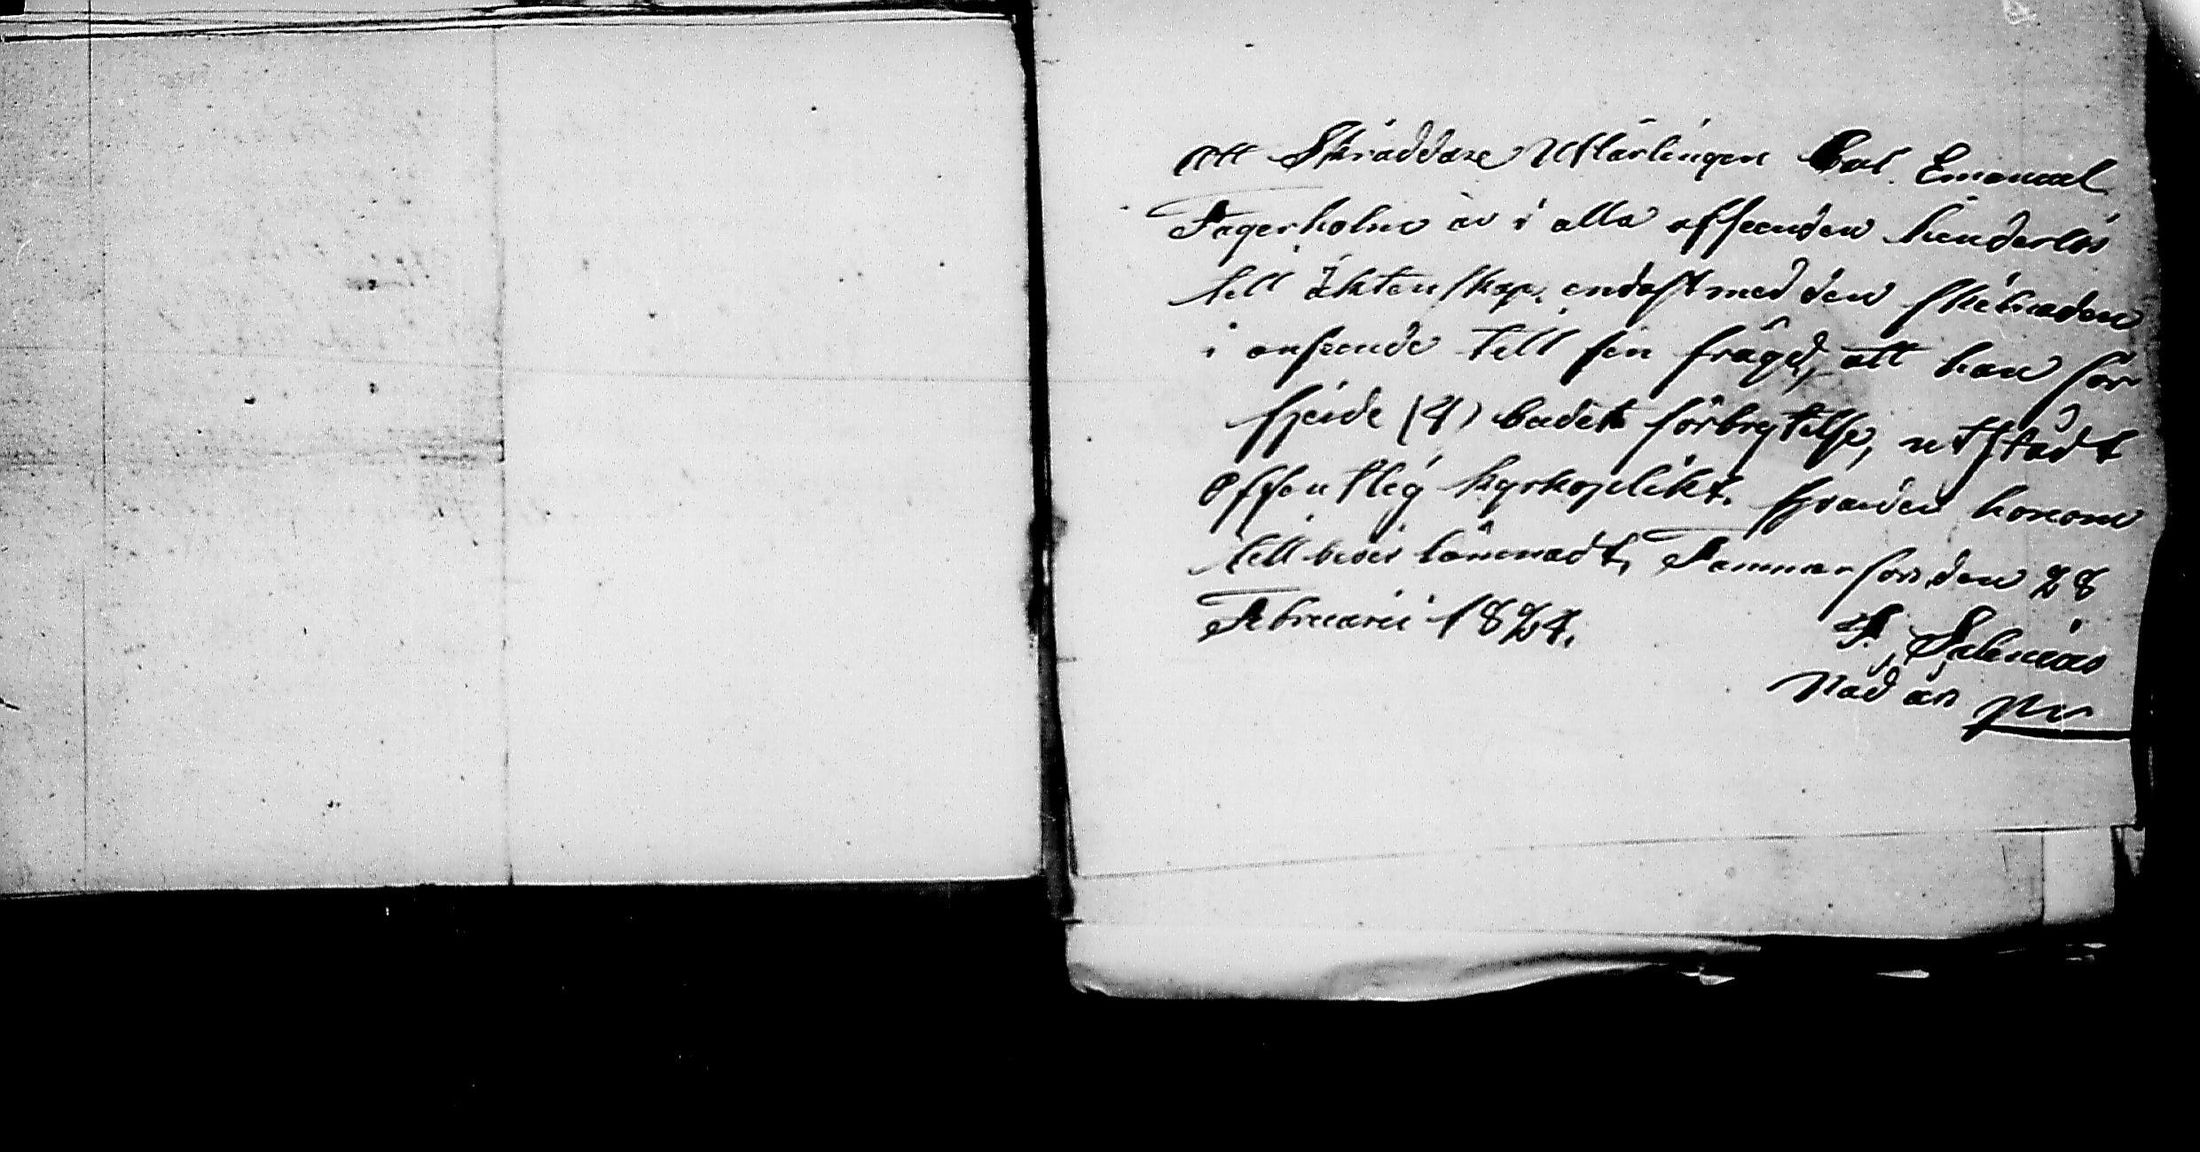 Att Skräddare Utlärlingen Carl Emanuel
Fagerholm är i alla afseenden hinderlös
till äktenskap, endast med den skilnaden
i anseende till sin frägd, att han för
fjerde (4) budets förbrytelse, utstådt
offentlig kyrkoplikt. hvarder honom
till bevis lämnadt, Tammerfors den 28
Februarii 1824.
F. Salenius
Nåd års Pr